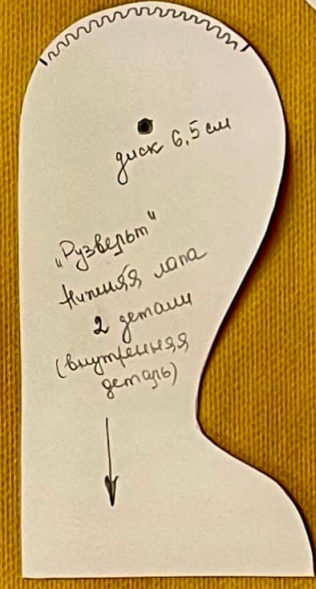 диск 6,5 см
„Рузвельт"
Нижняя лапа
2 детали
(внутренняя
деталь)